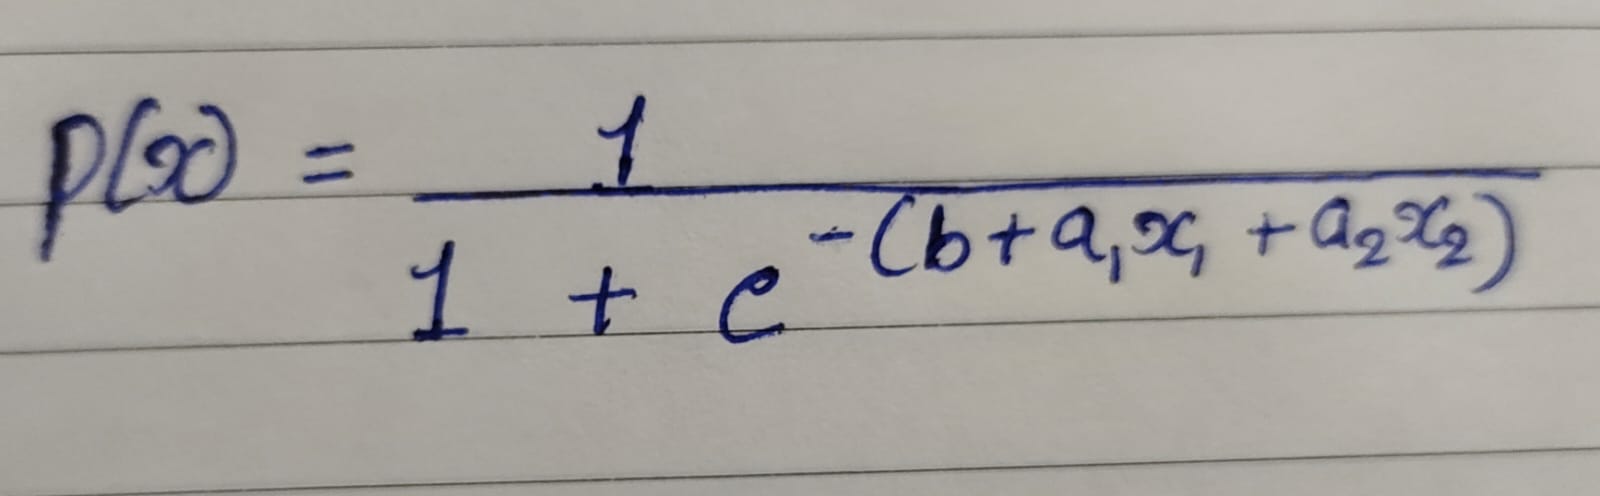 p(x) = 1 / (1 + e^{-(b + a₁x₁ + a₂x₂)})